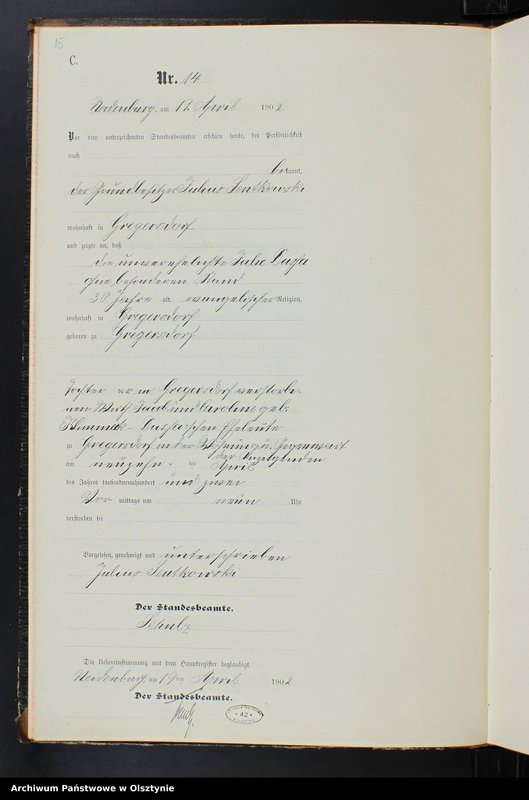 15
C.
Nr. 14
Neidenburg, am 12. April 1902
Vor dem unterzeichneten Standesbeamten erschien heute, der Persönlichkeit
nach
bekannt,
der Grundbesitzer Julius Sentkowski
wohnhaft in Gregersdorf
und zeigte an, daß
die unverehelichte Julie
ohne besonderen Stand
30 Jahre alt, evangelischer Religion,
wohnhaft in Gregersdorf
geboren zu Gregersdorf
Tochter der in Gregersdorf verstorbe-
nen Wirth und geb.
Eheleute
zu Gregersdorf in der Wohnung u. Gegenwart
des Anzeigenden
am ten April
des Jahres tausendneunhundert und zwei
Vor mittags um neun Uhr
verstorben sei
Vorgelesen, genehmigt und unterschrieben
Julius Sentkowski
Der Standesbeamte.
Schulz
Die Uebereinstimmung mit dem Hauptregister beglaubigt.
Neidenburg, am April 1902
Der Standesbeamte.
Schulz
42
Archiwum Państwowe w Olsztynie